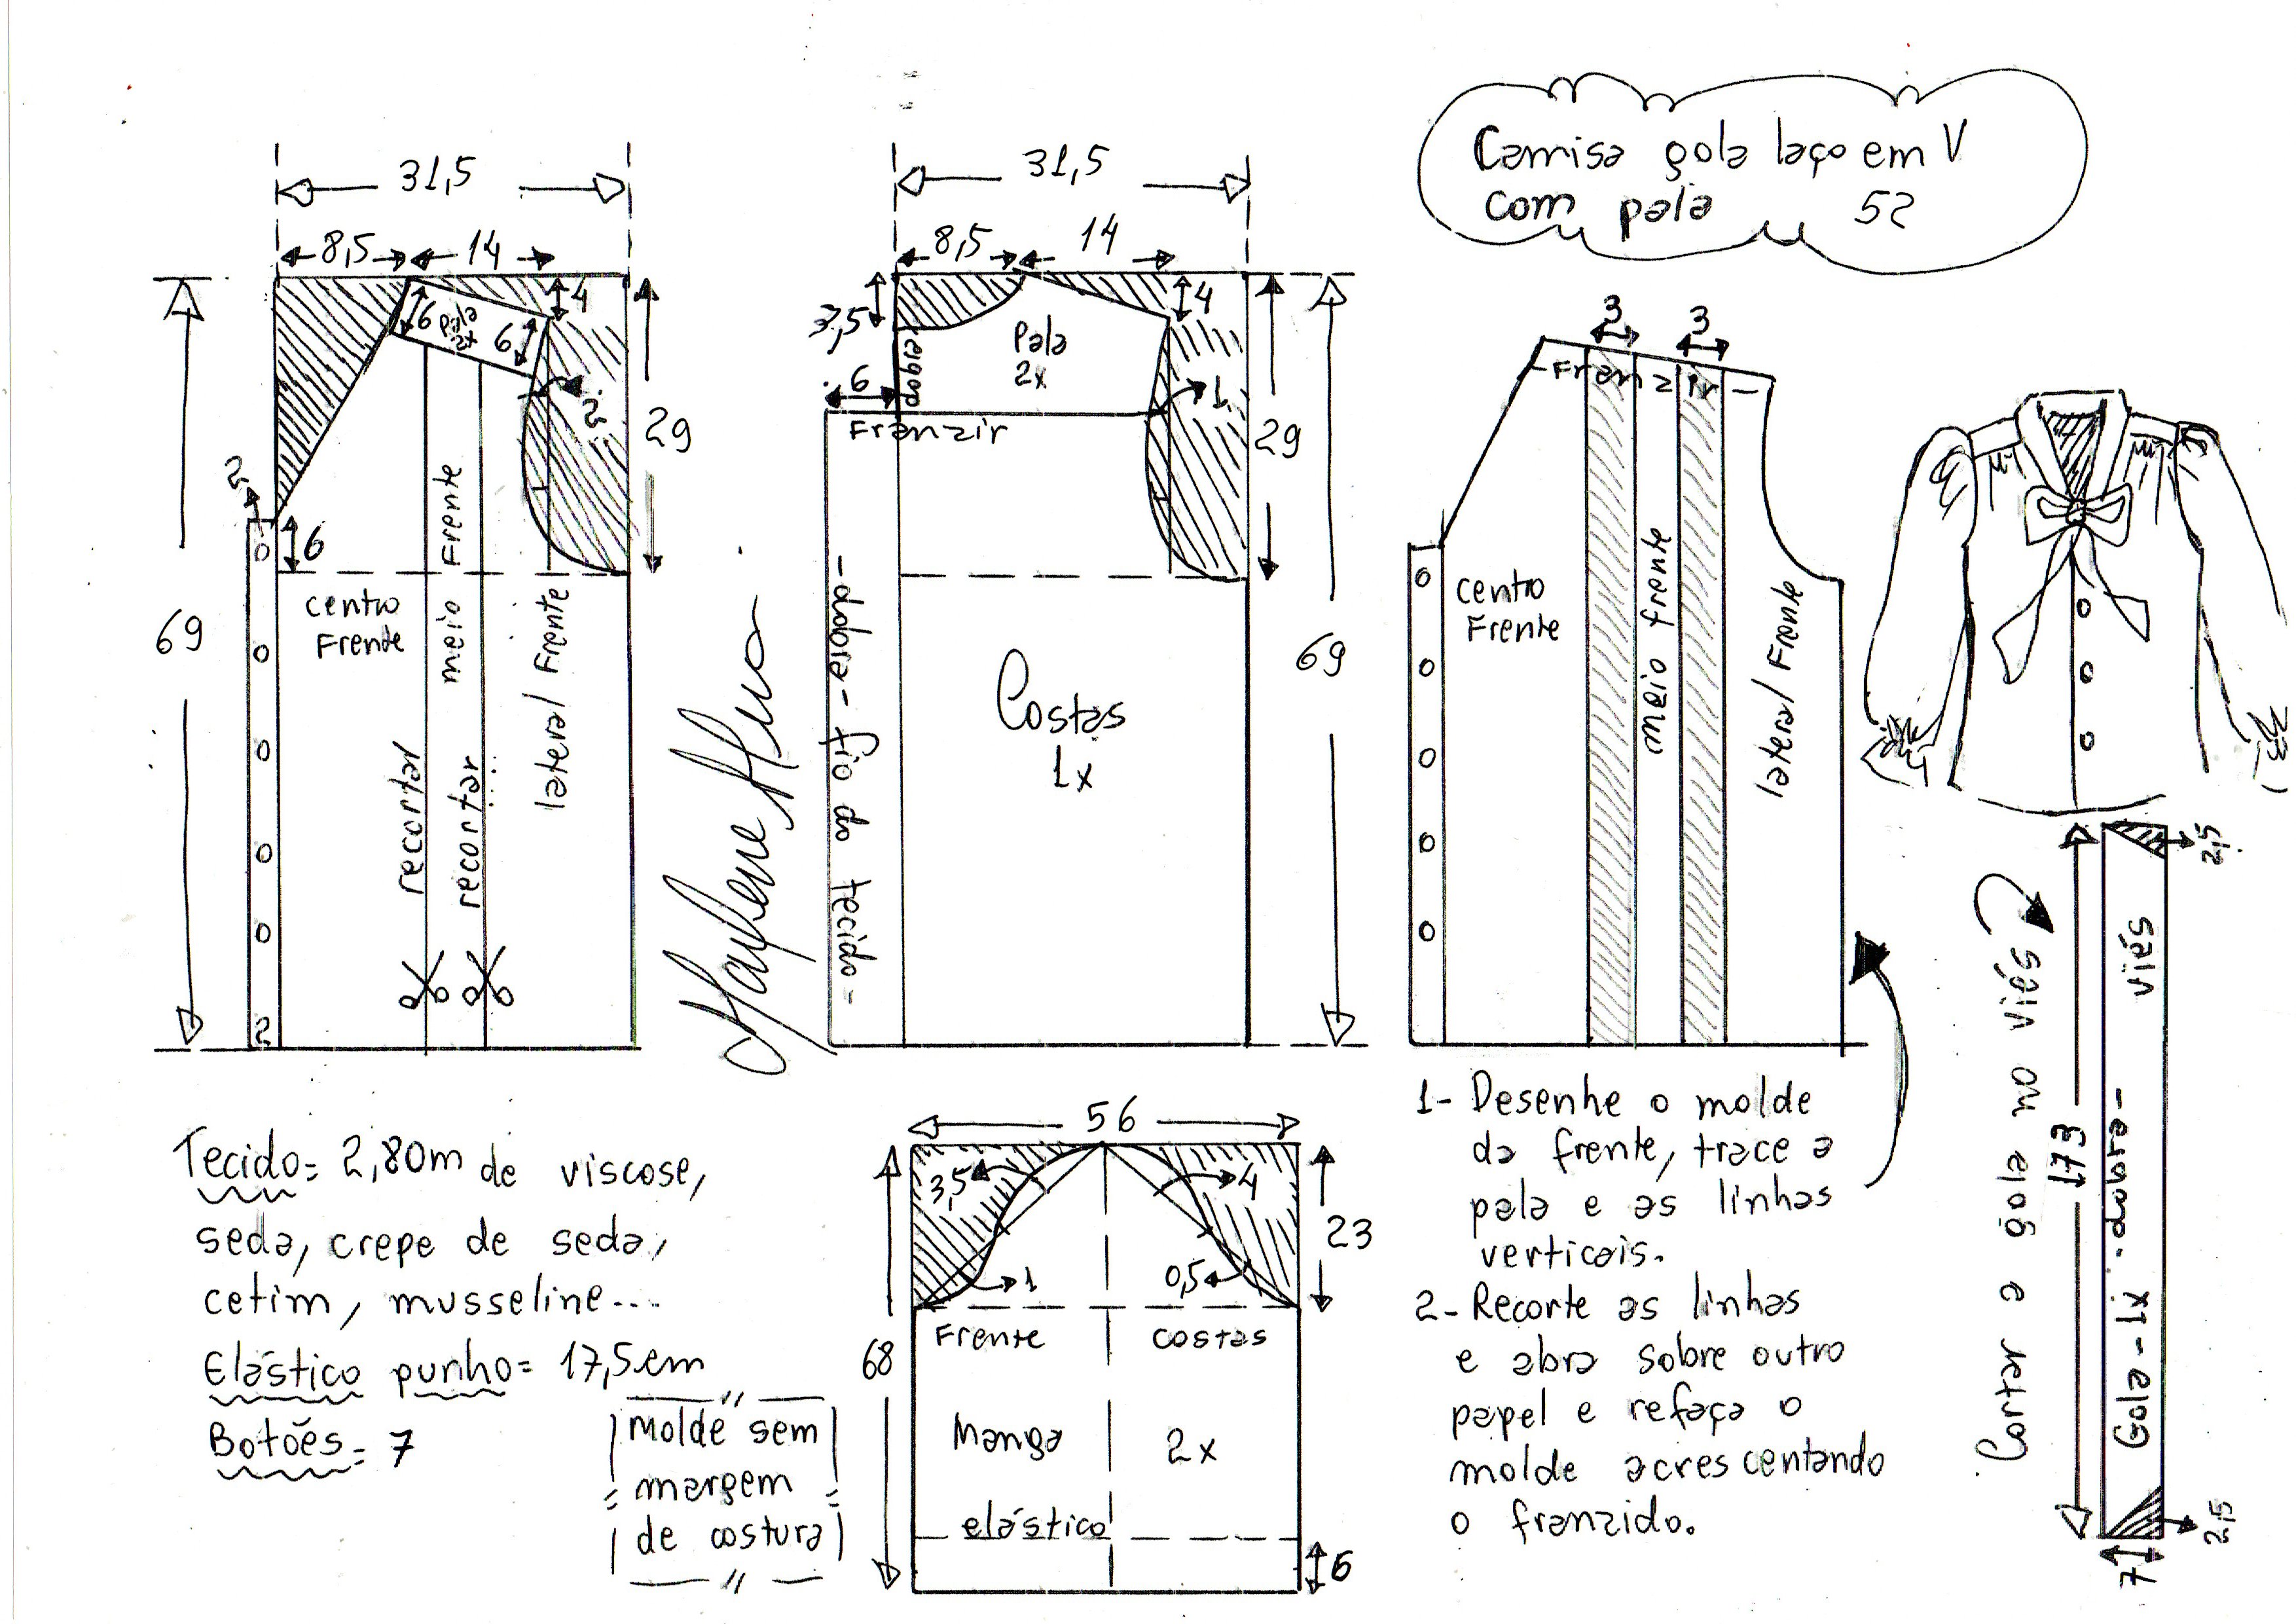 Camisa gola laço em V
com pala 52
31,5
8,5
14
4
6
pala
2x
6
2
29
2
6
69
centro
Frente
meio Frente
lateral Frente
recortar
recortar
2
Marlene Mukai
31,5
8,5
14
3,5
4
dobra
Pala
2x
6
1
Franzir
29
69
-dobra- fio do tecido-
Costas
1x
3
3
-Franzir-
centro
Frente
meio frente
lateral Frente
2,5
173
viés
-dobra-
Gola-1x
Cortar a gola no viés
2,5
7
Tecido= 2,80m de viscose,
seda, crepe de seda,
cetim, musseline...
Elástico punho= 17,5cm
Botões= 7
molde sem
margem
de costura
56
3,5
4
23
1
0,5
Frente
costas
68
Manga
2x
elástico
6
1- Desenhe o molde
da frente, trace a
pala e as linhas
verticais.
2- Recorte as linhas
e abra sobre outro
papel e refaça o
molde acrescentando
o franzido.